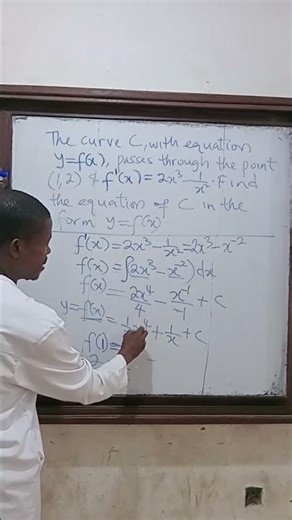 The curve C, with equation
y=f(x), passes through the point
(1, 2) & f'(x) = 2x³ - 1/x². Find
the equation of C in the
form y=f(x)
f'(x) = 2x³ - 1/x² = 2x³ - x⁻²
f(x) = ∫(2x³ - x⁻²)dx
f(x) = 2x⁴/4 - x⁻¹/-1 + C
y = f(x) = x⁴ + 1/x + C
f(1) =
2